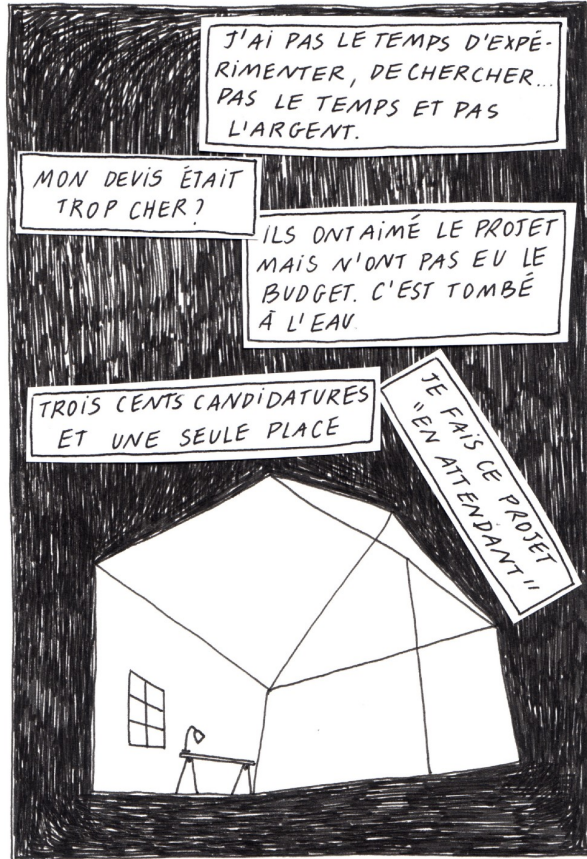 J'AI PAS LE TEMPS D'EXPÉ-
RIMENTER, DE CHERCHER...
PAS LE TEMPS ET PAS
L'ARGENT.
MON DEVIS ÉTAIT
TROP CHER?
ILS ONT AIMÉ LE PROJET
MAIS N'ONT PAS EU LE
BUDGET. C'EST TOMBÉ
À L'EAU
TROIS CENTS CANDIDATURES
ET UNE SEULE PLACE
JE FAIS CE PROJET
"EN ATTENDANT"